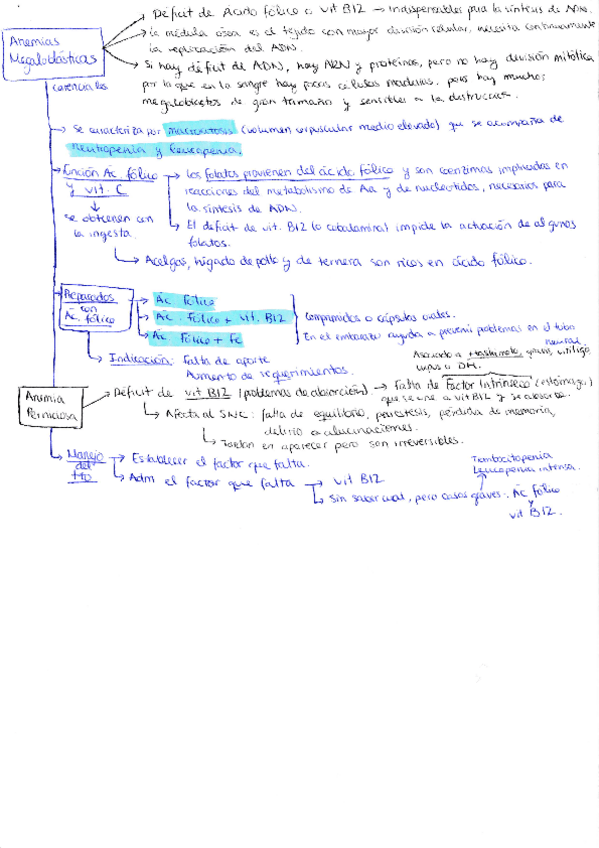 Déficit de Ácido fólico o vit B12 → Indispensables para la síntesis de ADN.
Anemias
Megaloblásticas
carenciales
→ La médula ósea es el tejido con mayor división celular, necesita continuamente
la replicación del ADN.
→ Si hay déficit de ADN, hay ARN y proteínas, pero no hay división mitótica
por lo que en la sangre hay pocas células maduras, pues hay muchos
megaloblastos de gran tamaño y sensibles a la destrucción.
→ Se caracteriza por macrocitosis (volumen corpuscular medio elevado) que se acompaña de
neutropenia y leucopenia.
→ Función Ác. fólico
y vit. C
→ los folatos provienen del ácido fólico y son coenzimas implicadas en
reacciones del metabolismo de Aa y de nucleótidos, necesarios para
la síntesis de ADN.
se obtienen con
la ingesta.
→ El déficit de vit. B12 (o cobalamina) impide la actuación de algunos
folatos.
→ Acelgas, hígado de pollo y de ternera son ricos en ácido fólico.
Preparados
con
Ác. fólico
→ Ác. fólico
→ Ác. fólico + vit. B12
→ Ác. fólico + Fe
Comprimidos o cápsulas orales.
En el embarazo ayuda a prevenir problemas en el tubo
neural.
→ Indicación: Falta de aporte
Aumento de requerimientos.
Asociado a Hashimoto, graves, vitíligo,
lupus o DM.
Anemia
Perniciosa
→ Déficit de vit B12 (problemas de absorción) → Falta de Factor Intrínseco (estómago)
que se une a vit B12 y se absorbe.
→ Afecta al SNC: falta de equilibrio, parestesias, pérdida de memoria,
delirio o alucinaciones.
→ Tardan en aparecer pero son irreversibles.
→ Manejo
del
tto
→ Establecer el factor que falta.
→ Adm el factor que falta → vit B12
→ Sin saber cual, pero casos graves. Ác fólico
y
vit B12.
Trombocitopenia
Leucopenia intensa.